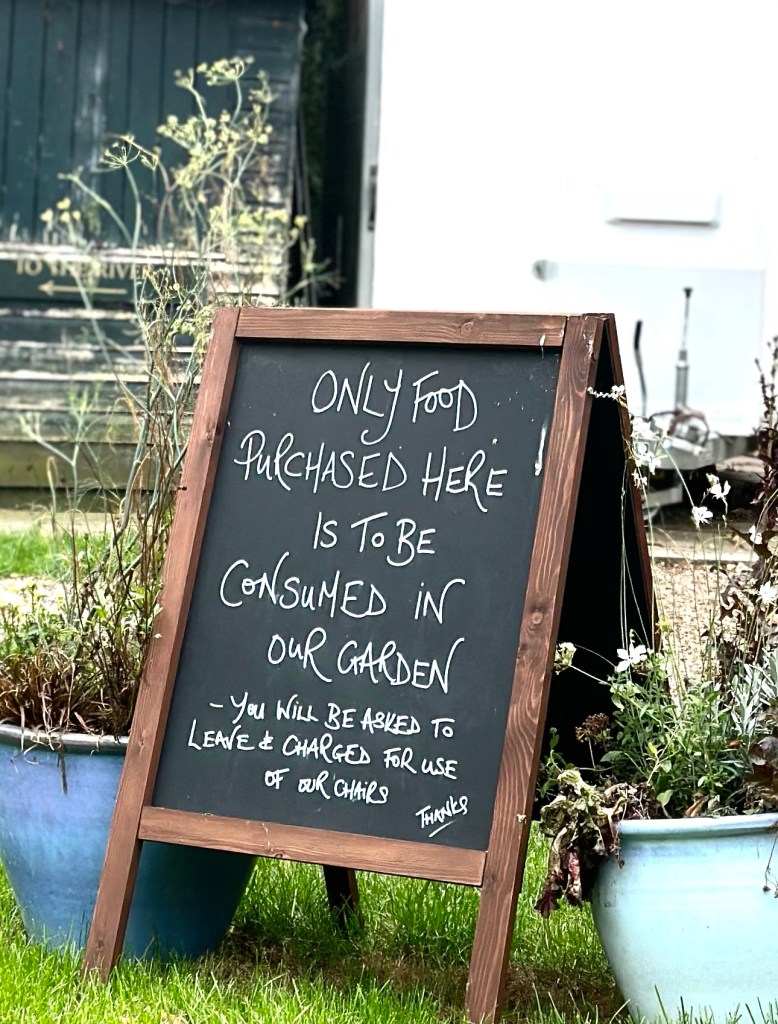 TO THE RIVER
ONLY FOOD
PURCHASED HERE
IS TO BE
CONSUMED IN
OUR GARDEN
- YOU WILL BE ASKED TO
LEAVE & CHARGED FOR USE
OF OUR CHAIRS
THANKS